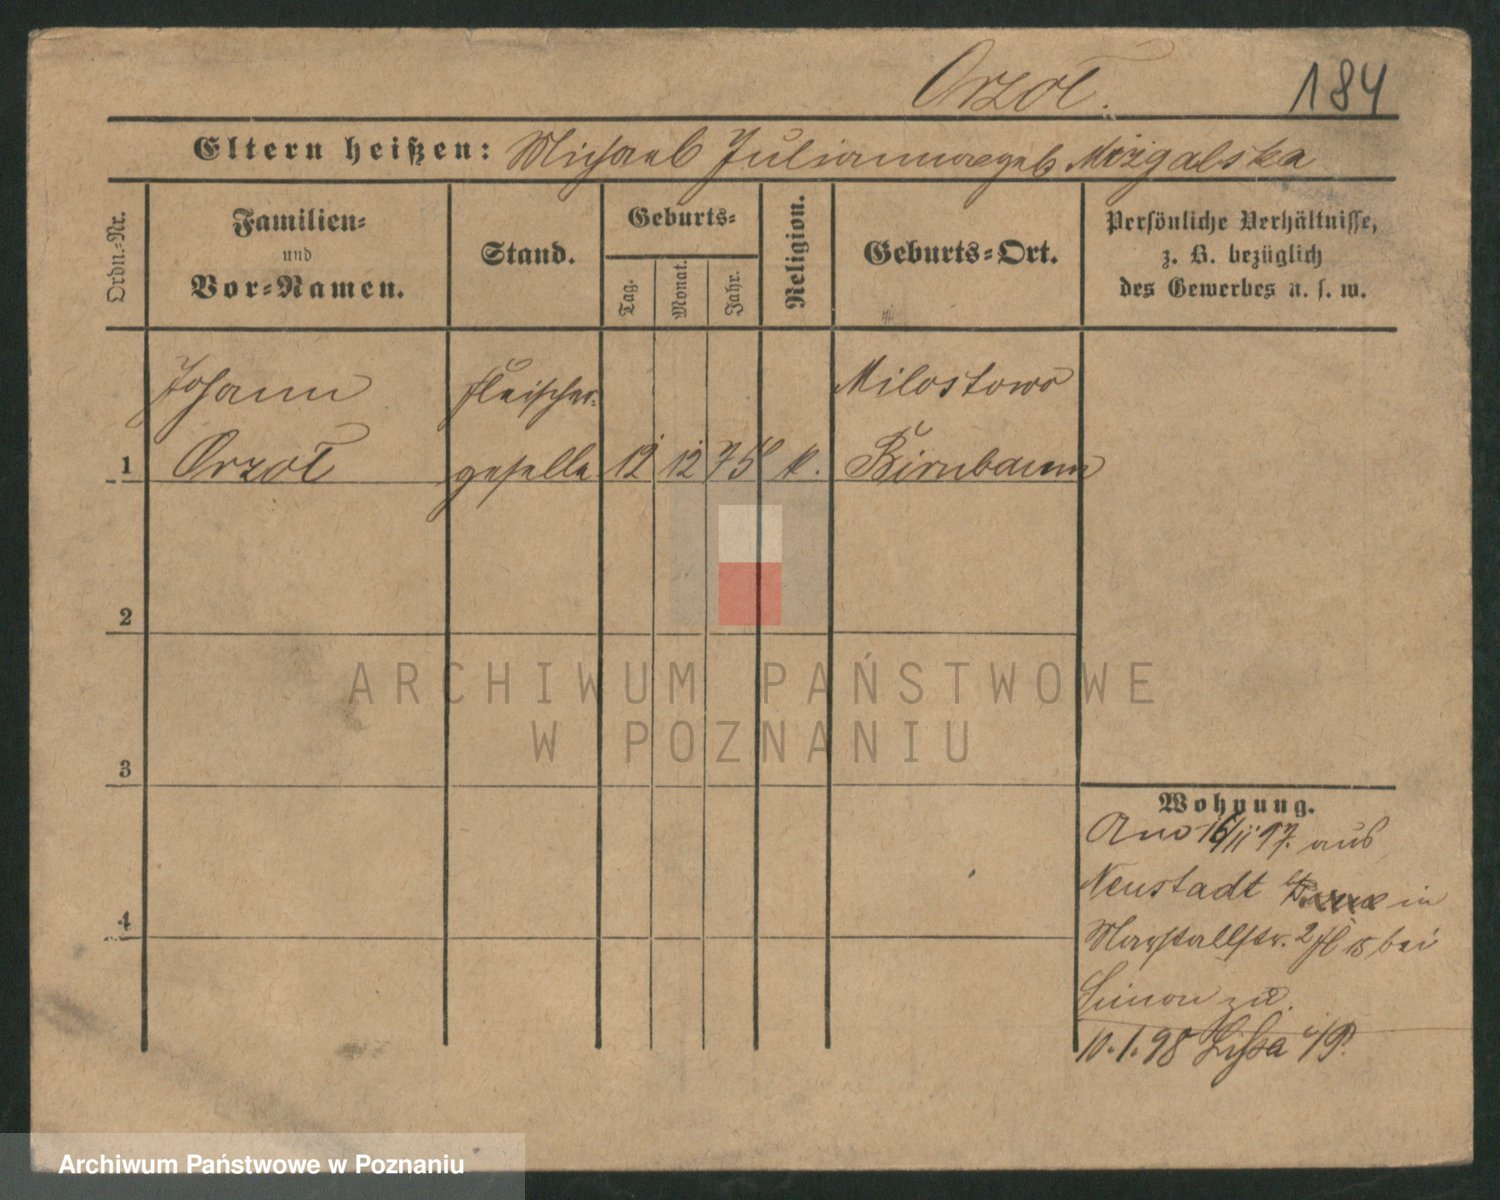 Orzoł.
184
Eltern heißen: Michael Julianna geb Mizgalska
Ordn.-Nr.
Familien-
und
Vor-Namen.
Stand.
Geburts-
Tag.
Monat.
Jahr.
Religion.
Geburts-Ort.
Persönliche Verhältnisse,
z. B. bezüglich
des Gewerbes u. s. w.
Johann Fleischer- Milostowo
1 Orzoł geselle 12 12 75 k. Birnbaum
2
3
4
Wohnung.
16/11 97. aus
Neustadt in
Marstallstr. bei
Simon zu.
10.1.98 Lissa i/P.
ARCHIWUM PAŃSTWOWE
W POZNANIU
Archiwum Państwowe w Poznaniu